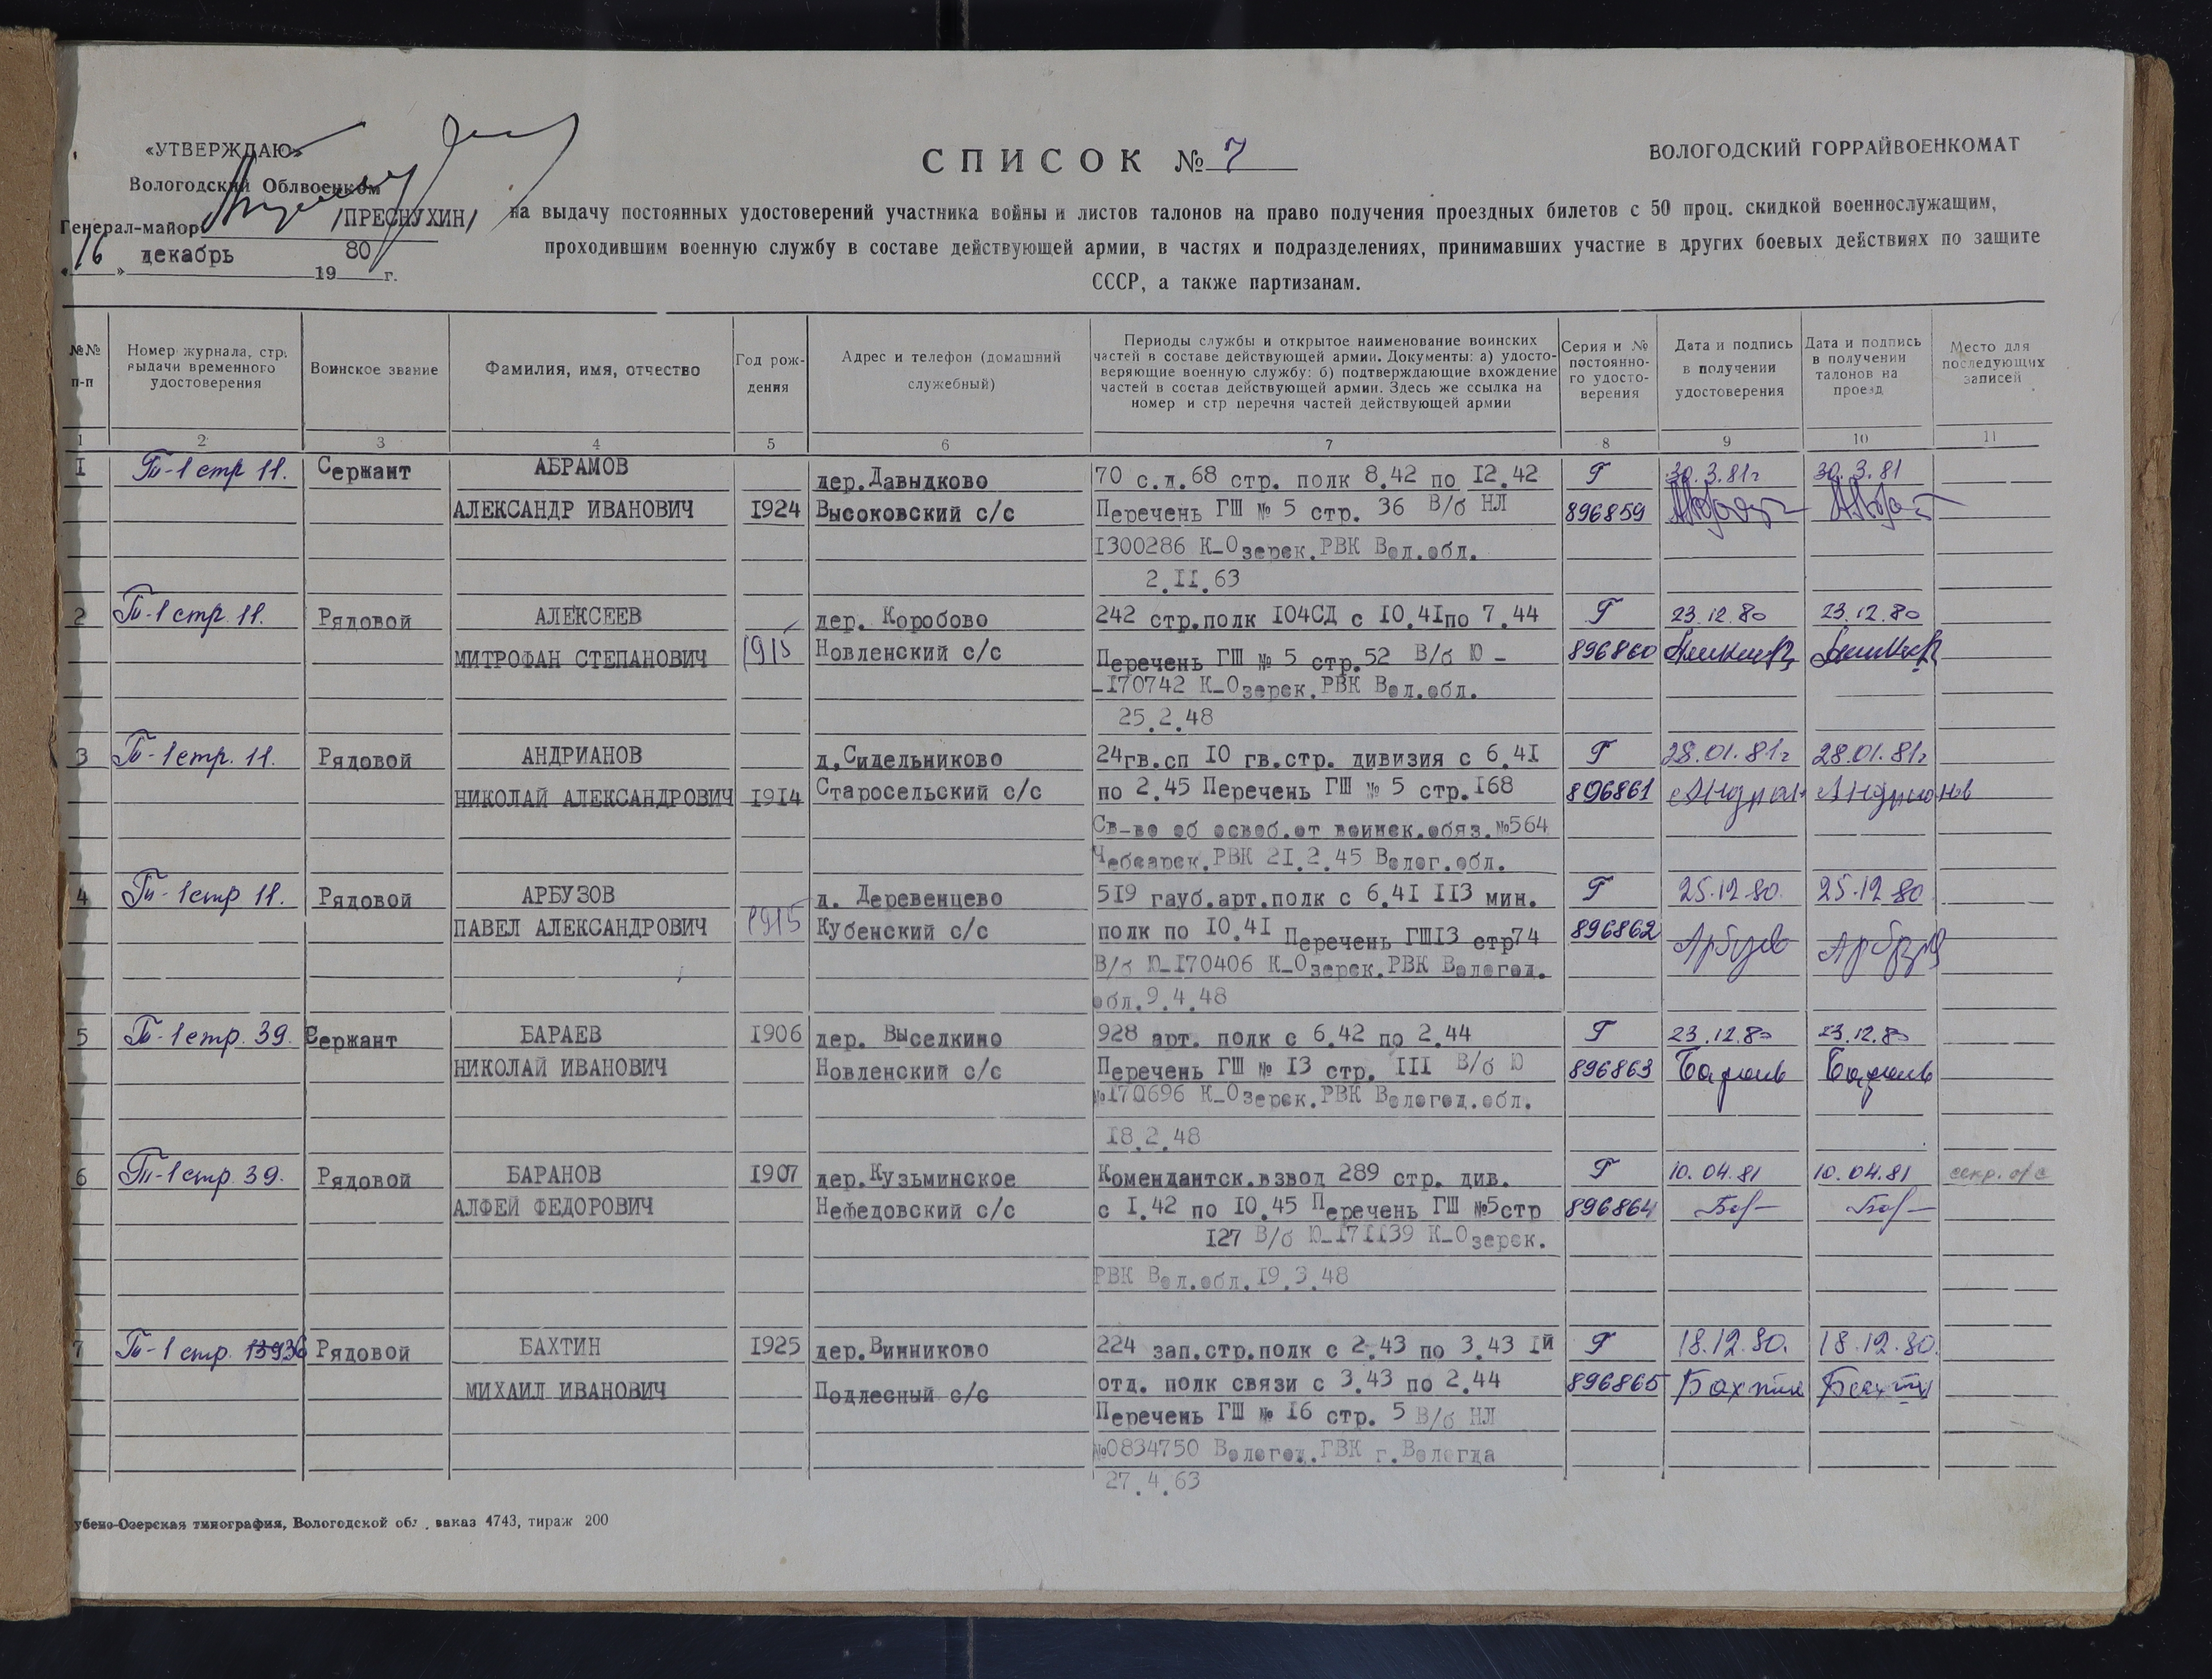 «УТВЕРЖДАЮ»
Вологодский Облвоенком
Генерал-майор /ПРЕСНУХИН/
«16» декабрь 1980 г.
СПИСОК № 7
ВОЛОГОДСКИЙ ГОРРАЙВОЕНКОМАТ
на выдачу постоянных удостоверений участника войны и листов талонов на право получения проездных билетов с 50 проц. скидкой военнослужащим,
проходившим военную службу в составе действующей армии, в частях и подразделениях, принимавших участие в других боевых действиях по защите
СССР, а также партизанам.
№№ п-п
Номер журнала, стр. выдачи временного удостоверения
Воинское звание
Фамилия, имя, отчество
Год рождения
Адрес и телефон (домашний служебный)
Периоды службы и открытое наименование воинских
частей в составе действующей армии. Документы: а) удосто-
веряющие военную службу: б) подтверждающие вхождение
частей в состав действующей армии. Здесь же ссылка на
номер и стр перечня частей действующей армии
Серия и № постоянно-го удосто-верения
Дата и подпись в получении удостоверения
Дата и подпись в получении талонов на проезд
Место для последующих записей
1 2 3 4 5 6 7 8 9 10 11
I Т-1 стр 11. Сержант АБРАМОВ дер.Давыдково 70 с.д. 68 стр. полк 8.42 по I2.42 Г 30.3.81г 30.3.81
АЛЕКСАНДР ИВАНОВИЧ I924 Высоковский с/с Перечень ГШ № 5 стр. 36 В/б НЛ 896859
I300286 К-Озерск.РВК Вол.обл.
2.II.63
2 Т-1 стр. 11. Рядовой АЛЕКСЕЕВ дер. Коробово 242 стр.полк I04СД с I0.4Iпо 7.44 Г 23.12.80 23.12.80
МИТРОФАН СТЕПАНОВИЧ 1915 Новленский с/с Перечень ГШ № 5 стр.52 В/б Ю - 896860
-I70742 К-Озерск.РВК Вол.обл.
25.2.48
3 Т-1 стр. 11. Рядовой АНДРИАНОВ д.Сидельниково 24гв.сп I0 гв.стр. дивизия с 6.4I Г 28.01.81г 28.01.81г
НИКОЛАЙ АЛЕКСАНДРОВИЧ I9I4 Старосельский с/с по 2.45 Перечень ГШ № 5 стр.I68 896861 Андриан Андрианов
Св-во об освоб.от воинск.обяз.№564
Чебсарск.РВК 2I.2.45 Волог.обл.
4 Т-1 стр 11. Рядовой АРБУЗОВ д. Деревенцево 5I9 гауб.арт.полк с 6.4I II3 мин. Г 25.12 80. 25.12 80
ПАВЕЛ АЛЕКСАНДРОВИЧ 1915 Кубенский с/с полк по I0.4I Перечень ГШI3 стр74 896862 Арбузов Арбузов
В/б Ю-I70406 К-Озерск.РВК Вологод.
обл.9.4.48
5 Т-1 стр. 39. Сержант БАРАЕВ I906 дер. Выселкино 928 арт. полк с 6.42 по 2.44 Г 23.12.80 23.12.80
НИКОЛАЙ ИВАНОВИЧ Новленский с/с Перечень ГШ № I3 стр. III В/б Ю 896863
№I70696 К-Озерск.РВК Вологод.обл.
I8.2.48
6 Т-1 стр 39. Рядовой БАРАНОВ I907 дер.Кузьминское Комендантск.взвод 289 стр. див. Г 10.04.81 10.04.81
АЛФЕЙ ФЕДОРОВИЧ Нефедовский с/с с I.42 по I0.45 Перечень ГШ №5стр 896864
I27 В/б Ю-I7II39 К-Озерск.
РВК Вол.обл.I9.3.48
7 Т-1 стр. Рядовой БАХТИН I925 дер.Винниково 224 зап.стр.полк с 2.43 по 3.43 Iй Г 18.12.80. 18.12.80.
МИХАИЛ ИВАНОВИЧ Подлесный с/с отд. полк связи с 3.43 по 2.44 896865 Бахтин Бахтин
Перечень ГШ № I6 стр. 5 В/б НЛ
№0834750 Вологод.ГВК г.Вологда
27.4.63
убено-Озерская типография, Вологодской обл. заказ 4743, тираж 200